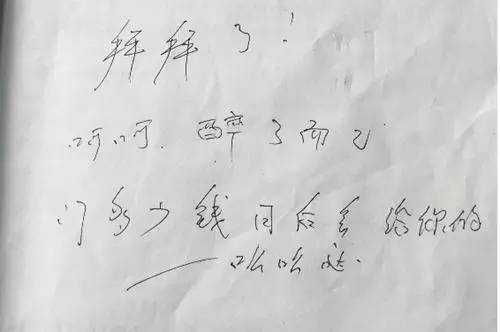 拜拜了!
呵呵.醉了而已
门多少钱回后会给你的
——哈哈哒.